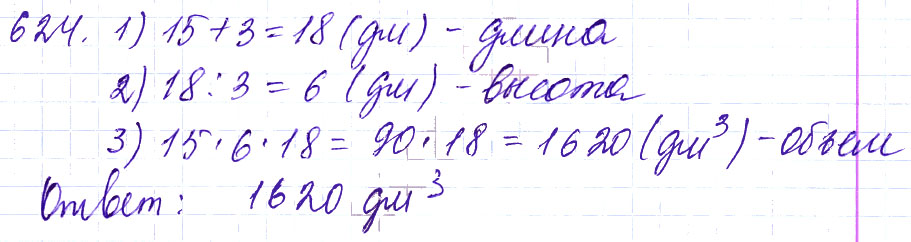 624. 1) 15+3=18 (дм) - длина
2) 18:3=6 (дм) - высота
3) 15·6·18=90·18=1620 (дм³) - объем
Ответ: 1620 дм³